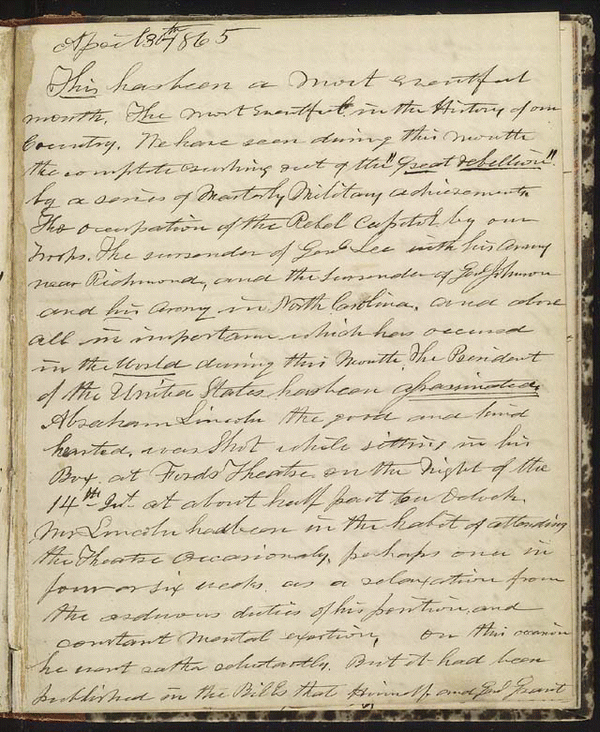 April 30th 1865
This has been a most eventful
month. The most eventful in the History of our
Country. We have seen during this month
the complete crushing out of the "Great rebellion"
by a series of Masterly Military achievements
The occupation of the Rebel Capitol by our
troops. The surrender of Genl Lee with his army
near Richmond, and the surrender of Genl Johnson
and his Army in North Carolina, and above
all in importance which has occured
in the World during this Month. The President
of the United States has been assassinated.
Abraham Lincoln the good and kind
hearted, was Shot while sitting in his
Box at Fords Theatre on the night of the
14th Inst at about half past ten Oclock.
Mr Lincoln had been in the habit of attending
the Theatre occasionaly, perhaps once in
four or six weeks as a relaxation from
the arduous duties of his position, and
constant mental exertion, on this occasion
he went rather reluctantly. But it had been
published in the Bills that Himself and Genl Grant